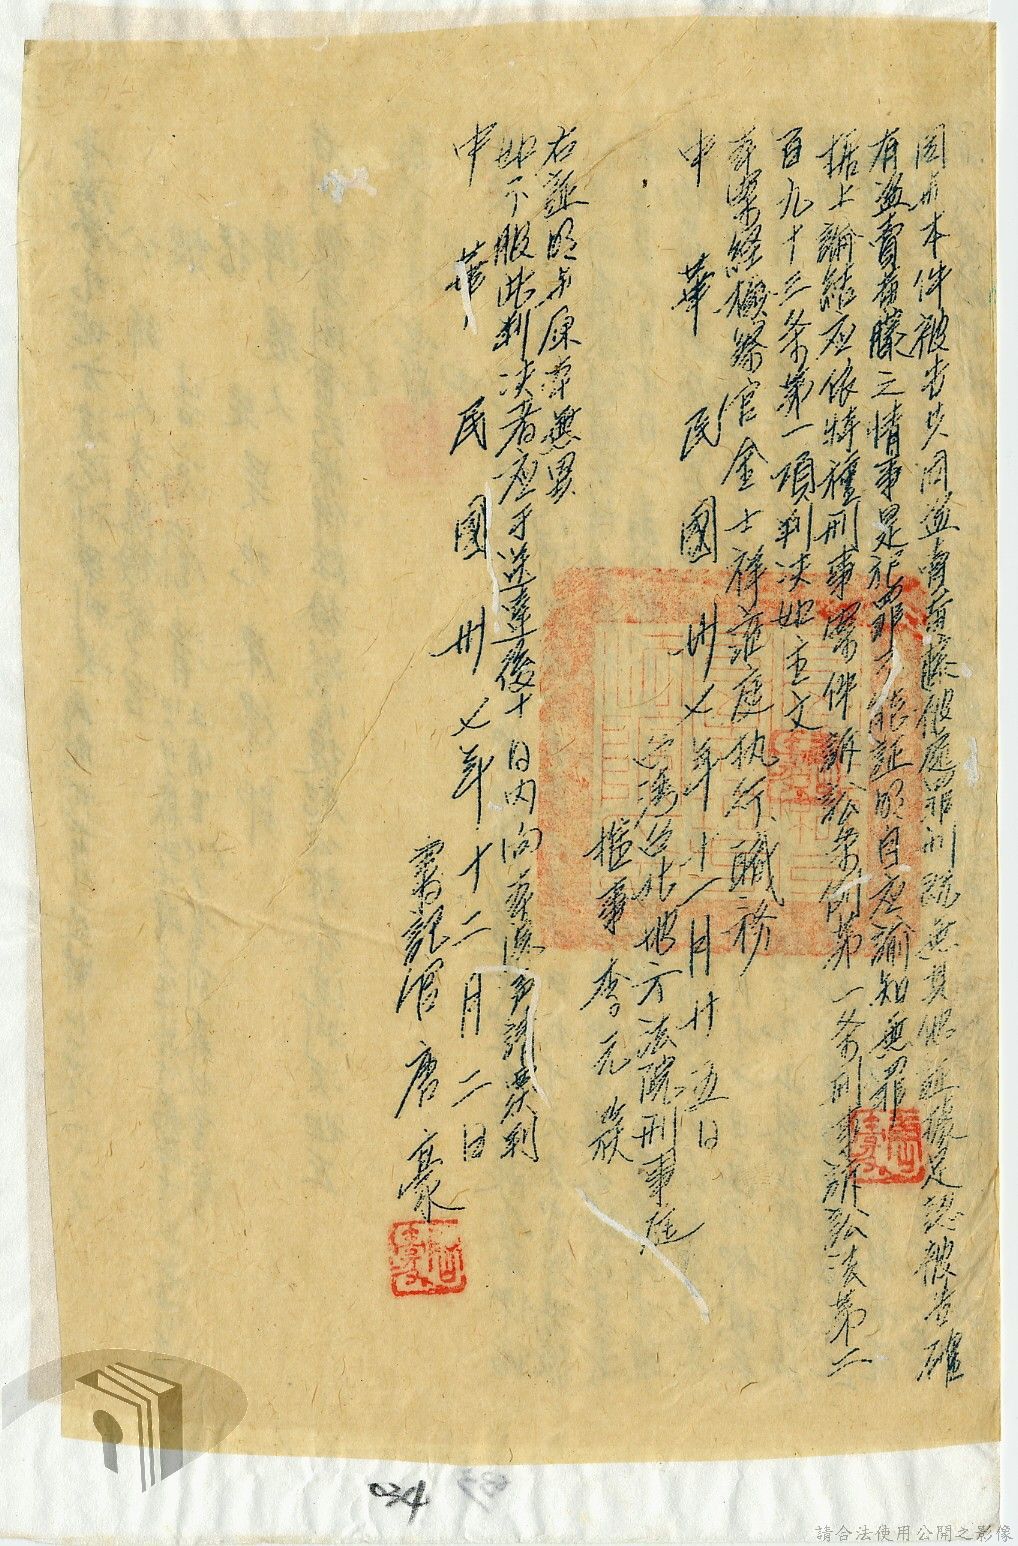 因此本件被告共同盗賣首藤彼處罪刑既無其他証據足認被告確
有盗賣首藤之情事是犯罪不能証明自应諭知無罪
据上論結应依特種刑事案件訴訟条例第一条刑事訴訟法第二
百九十三条第一項判决如主文
本案経檢察官金士祥蒞庭执行職務
中華民國卅七年十一月廿五日
台湾台北地方法院刑事庭
推事 李元簇
右証明与原本無異
如不服此判决者应于送達後十日内向本院声請覆判
中華民國卅七年十二月二日
書記官 唐豪
034
請合法使用公開之影像